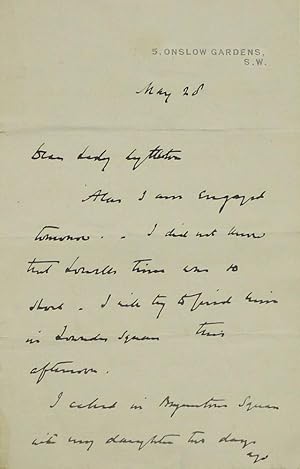 5, ONSLOW GARDENS,
S.W.
May 28
Dear Lady Lyttleton
Alas I am engaged
tomorrow. - I did not know
that Lowell's time was so
short - I will try to find him
in Lowndes Square this
afternoon.
I called in Bryanston Square
with my daughter two days
ago